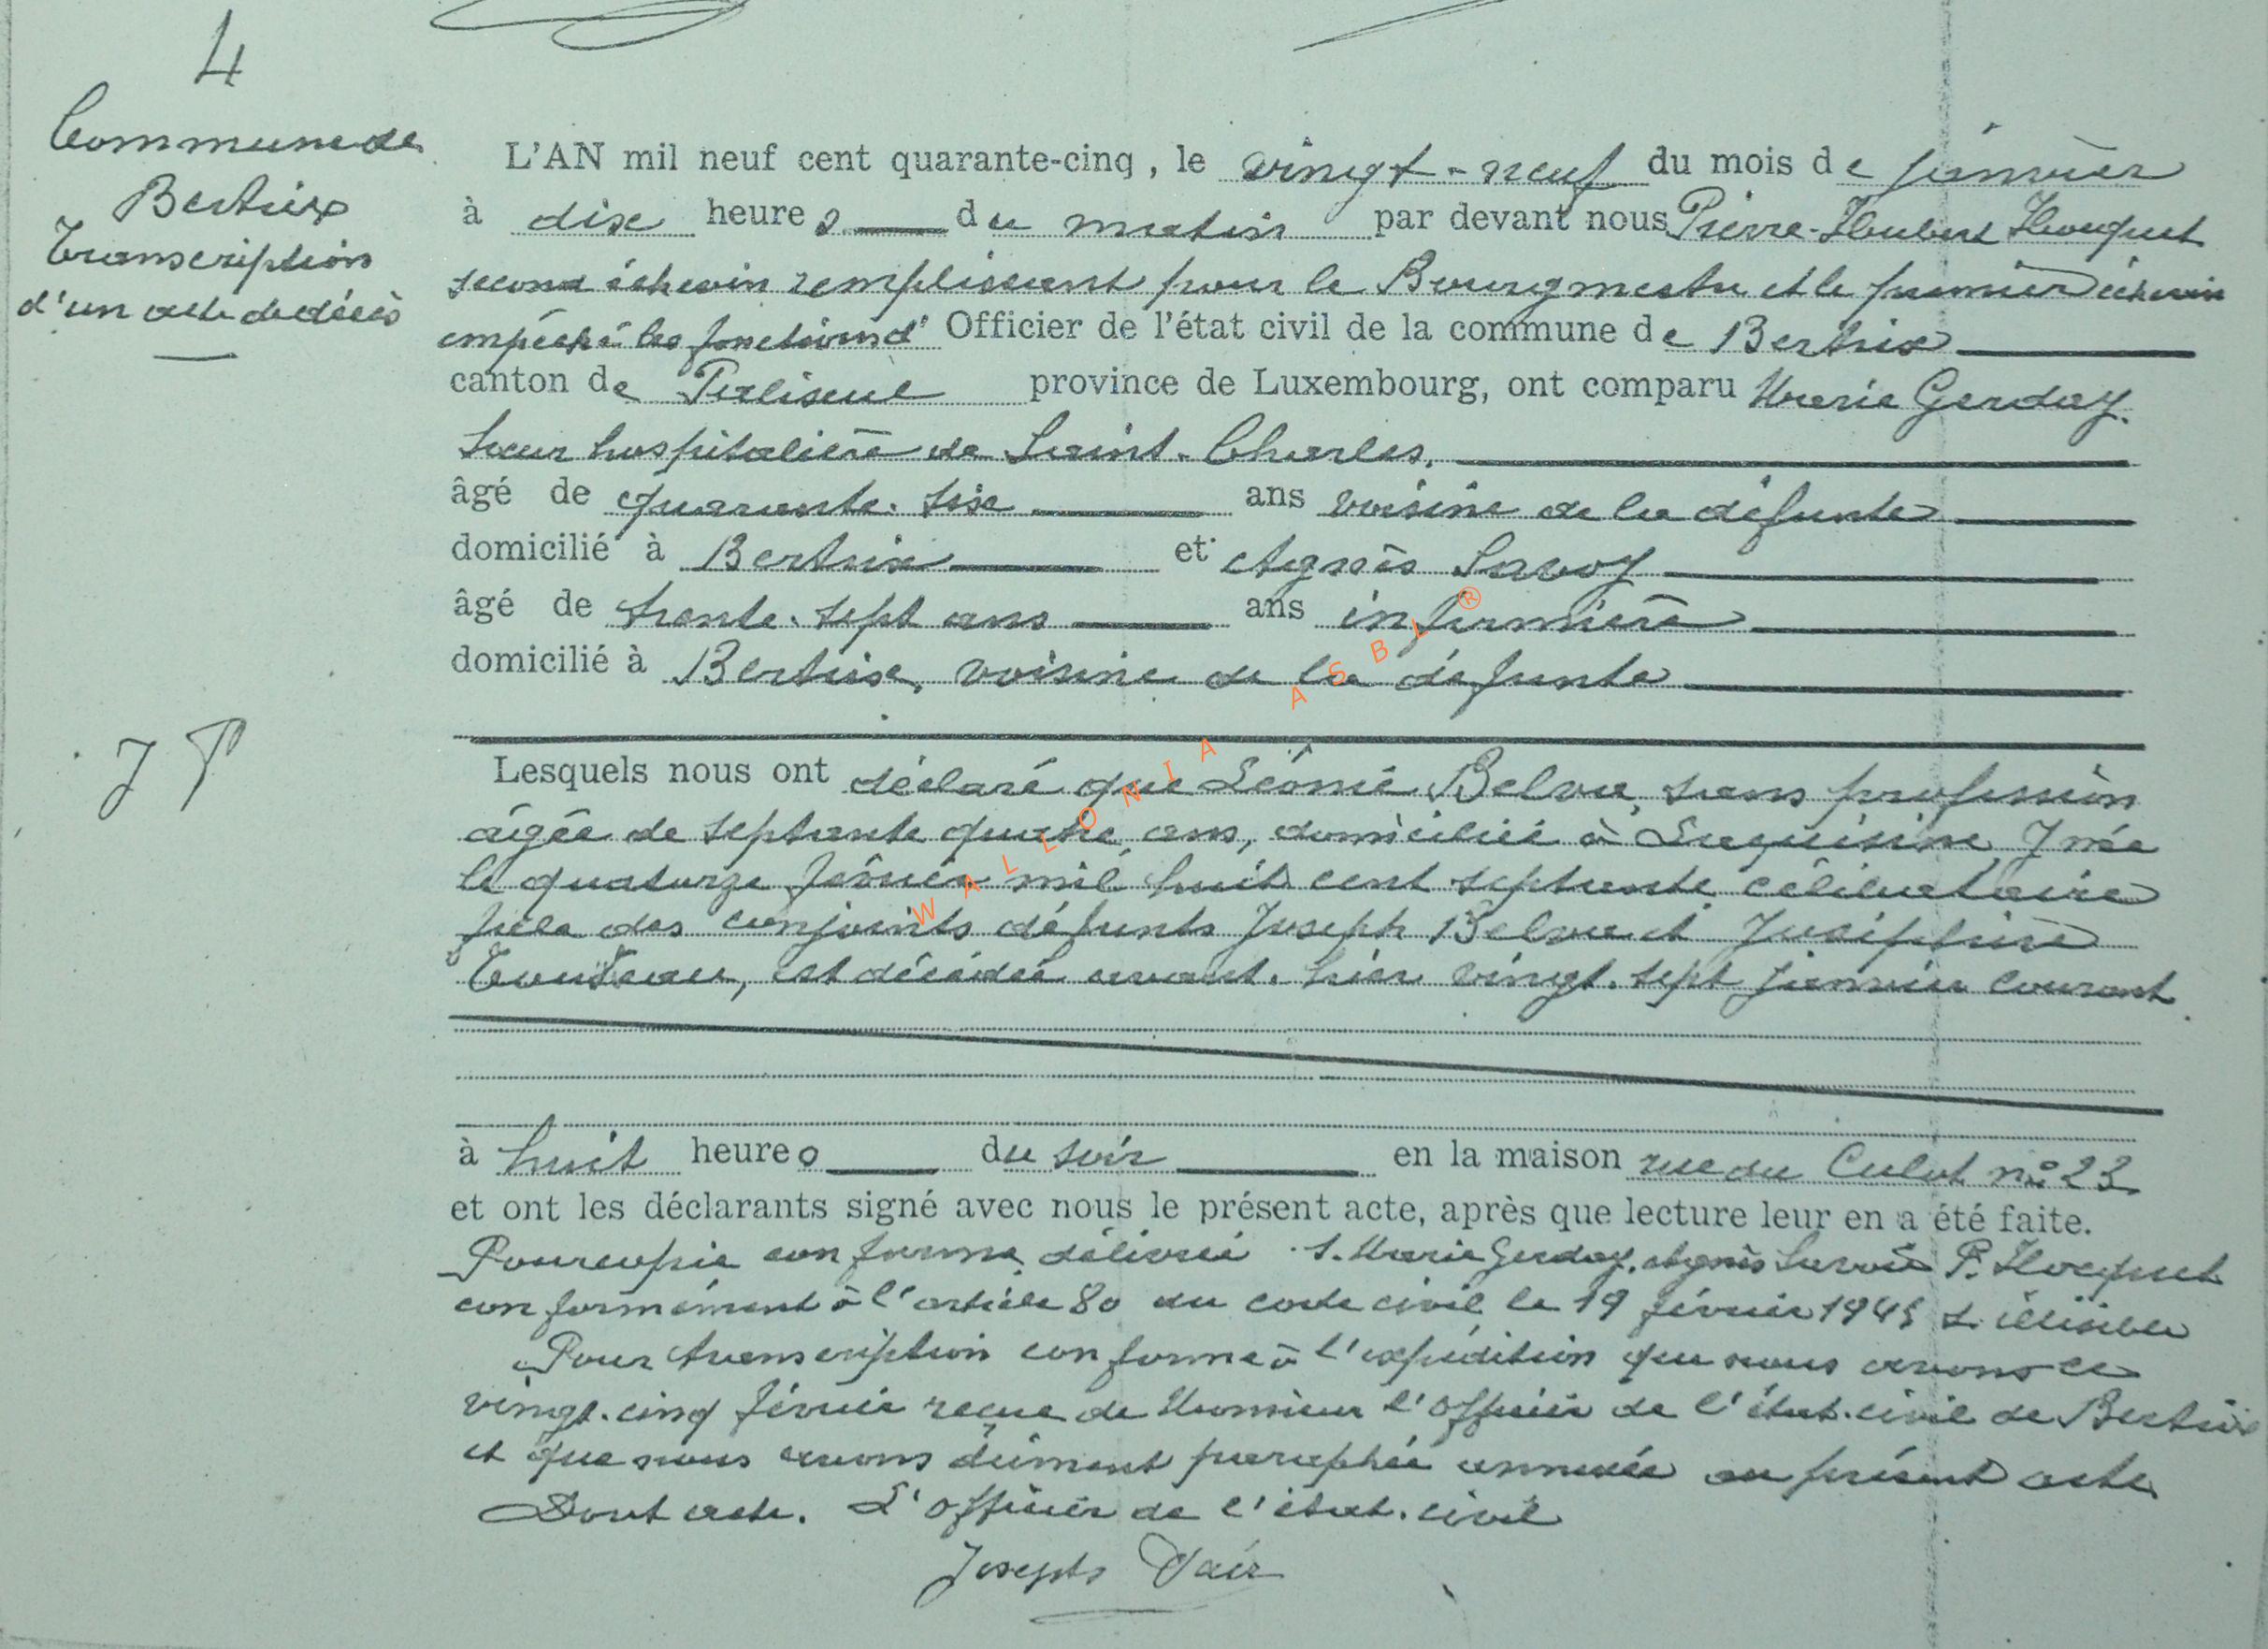 4
Commune de
Bertrix
Transcription
d'un acte de décès
L'AN mil neuf cent quarante-cinq, le vingt-neuf du mois de janvier
à dix heures du matin par devant nous Pierre-Hubert Hocquet
second échevin remplissant pour le Bourgmestre et le premier échevin
empêché les fonctions d' Officier de l'état civil de la commune de Bertrix
canton de Paliseul province de Luxembourg, ont comparu Marie Gerday.
Sœur hospitalière de Saint-Charles.
âgé de quarante-six ans voisine de la défunte
domicilié à Bertrix et Agnès Savoy
âgé de trente-sept ans ans infirmière
domicilié à Bertrix, voisine de la défunte
J P
Lesquels nous ont déclaré que Léonie Belva, sans profession
âgée de septante quatre ans, domiciliée à née
le quatorze février mil huit cent septante célibataire
fille des conjoints défunts Joseph Belva et Joséphine
est décédée avant-hier vingt-sept janvier courant
à huit heures du soir en la maison rue du Culot n° 23
et ont les déclarants signé avec nous le présent acte, après que lecture leur en a été faite.
Pour copie conforme délivrée S. Marie Gerday, Agnès P. Hocquet
conformément à l'article 80 du code civil le 19 février 1945 S. illisible
Pour transcription conforme à l'expédition que nous avons ce
vingt-cinq février reçue de Monsieur l'Officier de l'état-civil de Bertrix
et que nous avons dûment paraphée annexée au présent acte
Dont acte. L'officier de l'état-civil
Joseph
WALLONIA ASBL ®